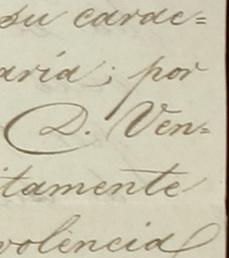 su carac=
aría; por
D. Ven=
itamente
volencia